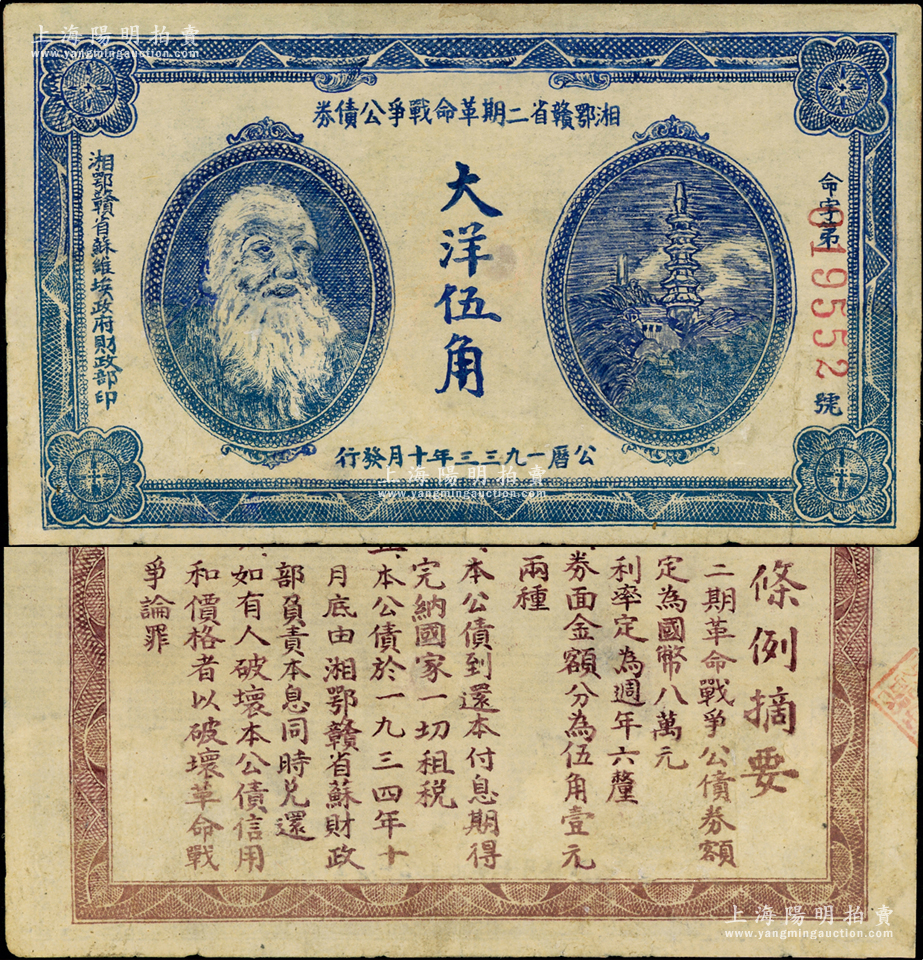 上海陽明拍賣
www.yangmingauction.com
湘鄂贛省二期革命戰爭公債券
大洋伍角
湘鄂贛省蘇維埃政府財政部印
命字第019552號
公曆一九三三年十月發行
上海陽明拍賣
www.yangmingauction.com
條例摘要
二期革命戰爭公債券額
定為國幣八萬元
利率定為週年六釐
券面金額分為伍角壹元
兩種
本公債到還本付息期得
完納國家一切租税
本公債於一九三四年十
月底由湘鄂贛省蘇財政
部負責本息同時兌還
如有人破壞本公債信用
和價格者以破壞革命戰
爭論罪
上海陽明拍賣
www.yangmingauction.com